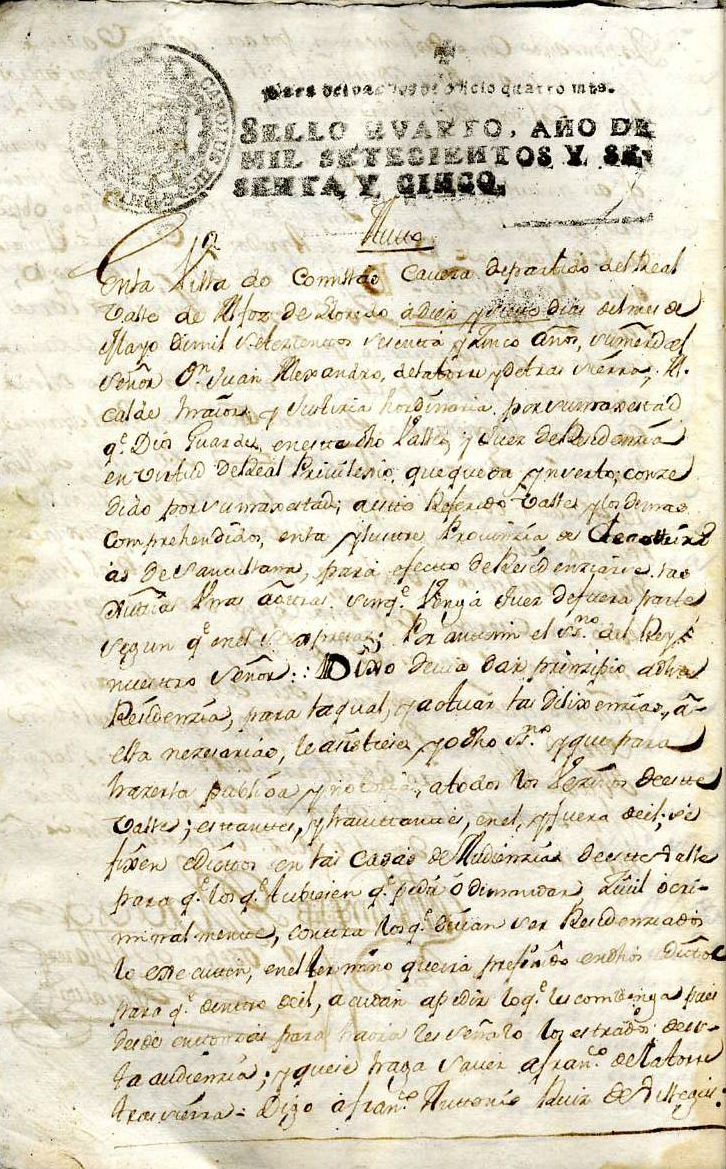 CAROLUS III
SELLO QVARTO, AÑO DE
MIL SETECIENTOS Y SE-
SENTA Y CINCO.
Auto
Enla Villa de Comillas Cavera departido del Real
Valle de Alfoz de Lloredo a diez y siete dias del mes de
Mayo demil setezientos sesenta y zinco años, sumerd el
señor Dn. Juan Alexandro, delatorre ydetras sierra, Al
calde maior y Justizia hordinaria por sumaxestad
q.e Dios Guarde, eneste dho Valle, y Juez de Residenzia
en virtud de Real Privilexio, que queda ynserto, conze
dido por sumaxestad; aeste Referido Valle y los demas
Comprehendidos, enla ylustre Provinzia de
as de Santillana, para efecto de Residenziarse las
unas aotras sinq.e Venga Juez defuera parte
segun q.e enel se apresa; Por antemi el ss.no del Rey
nuestro señor:: Dixo devia dar prinzipio adha
Residenzia, para laqual, yactuar las dilixenzias, a
ella nezesarias, yo dho ss.no y que para
hazerla publica y notoria, atodos los Vezinos deeste
Valle; estantes, y havitantes, enel, y fuera deel; se
fixen edictos en las Casas de Audienzia deeste Valle
para q.e los q.e tubiesen q.e pedir o demandar Zivil o cri-
minalmente, contra los q.e devian ser Residenziados
lo executen, enel termino queira prefinido endhos edictos
para q.e dentro deel, acudan apedir loq.e les combenga pues
desde entonzes para haora les señalo los estrados dees-
ta audienzia; y quese haga saver afran.co delatorre
trassierra = Digo afran.co Antonio Ruiz de Villegas: